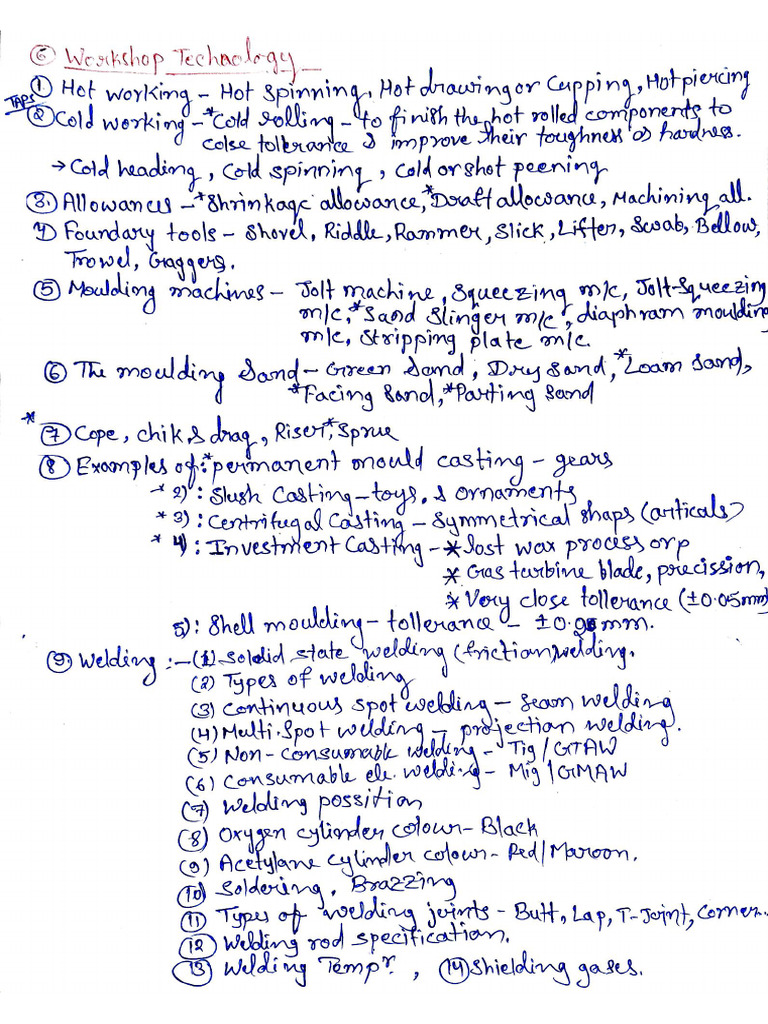 ⑥ Workshop Technology
① Hot working - Hot spinning, Hot drawing or Cupping, Hot piercing
TAPS
② Cold working - *Cold rolling - to finish the hot rolled components to
colse tolerance & improve their toughness as hardness.
→ Cold heading, Cold spinning, cold or shot peening
③ Allowances - *Shrinkage allowance, *Draft allowance, Machining all.
4) Foundary tools - Shovel, Riddle, Rammer, Slick, Lifter, Swab, Bellow,
Trowel, Gaggers.
⑤ Moulding machines - Jolt machine, Squeezing m/c, Jolt-Squeezing
m/c, *Sand Slinger m/c, diaphram moulding
m/c, stripping plate m/c.
⑥ The moulding Sand - Green Sand, Dry Sand, *Loam Sand,
*Facing Sand, *Parting Sand
* ⑦ Cope, chik & drag, Riser, *Sprue
⑧ Examples of: *permanent mould casting - gears
* 2): Slush Casting - toys & ornaments
* 3): Centrifugal Casting - Symmetrical shaps (articals)
* 4): Investment Casting - * lost wax process orp
* Gas turbine blade, precission,
* Very close tollerance (±0.05mm)
5): Shell moulding - tollerance - ±0. mm.
⑨ Welding :- (1) Soldid state welding (friction) welding.
(2) Types of welding
(3) Continuous spot welding - seam welding
(4) Multi-Spot welding - projection welding.
(5) Non-consumable welding - Tig/GTAW
(6) Consumable ele. welding - Mig/GMAW
(7) Welding possition
(8) Oxygen cylinder colour - Black
(9) Acetylane cylinder colour - Red/Maroon.
⑩ Soldering, Brazzing
⑪ Types of welding joints - Butt, Lap, T-Joint, Corner.
⑫ Welding rod specification.
⑬ Welding Tempr, ⑭ Shielding gases.